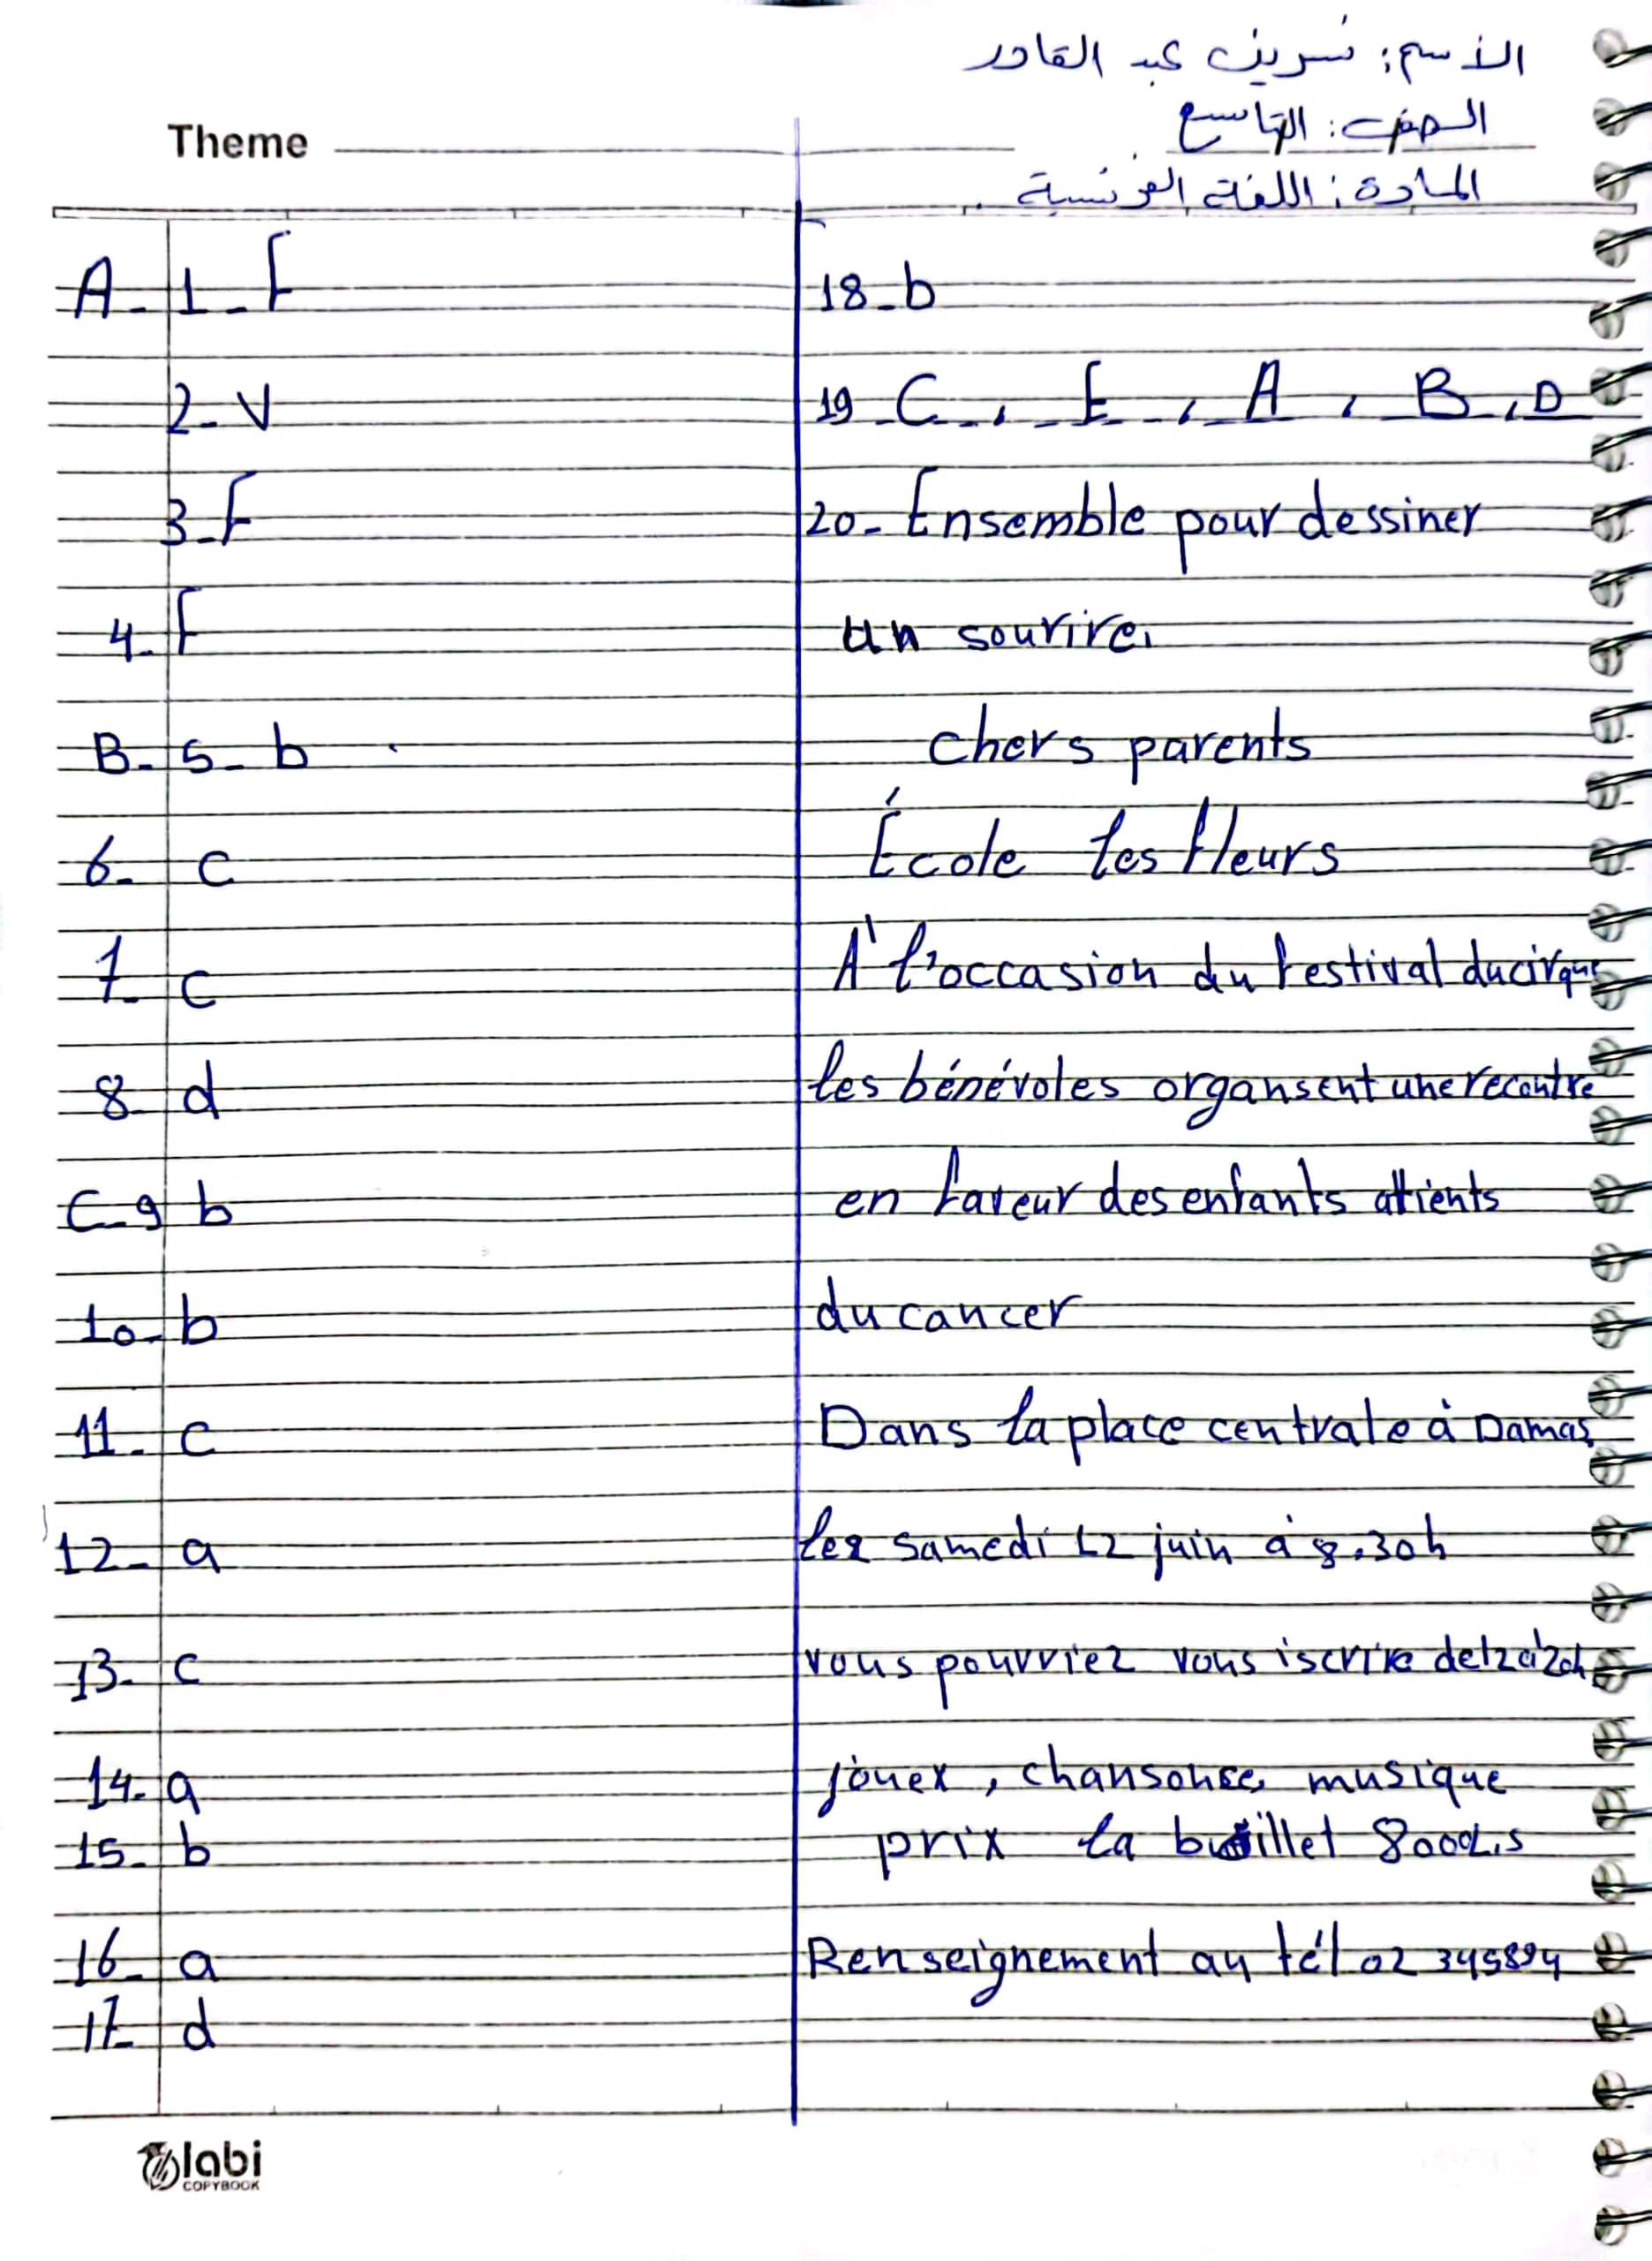 الاسم: نسرين عبد القادر
الصف: التاسع
المادة: اللغة الفرنسية
Theme
A- 1- F
2- V
3- F
4- F
B- 5- b
6- c
7- c
8- d
C-9 b
10- b
11- c
12- a
13- c
14- a
15- b
16- a
17- d
18-b
19 C, E, A, B, D
20- Ensemble pour dessiner
un sourire.
chers parents
École les fleurs
À l'occasion du festival du cirque
les bénévoles organsent une recontre
en faveur des enfants attients
du cancer
Dans la place centrale à Damas
samedi 12 juin à 8.30h
vous pourriez vous iscrire de12à20h
jouex, musique
prix la 8000L.s
Renseignement au tél 02 345894
labi
COPYBOOK